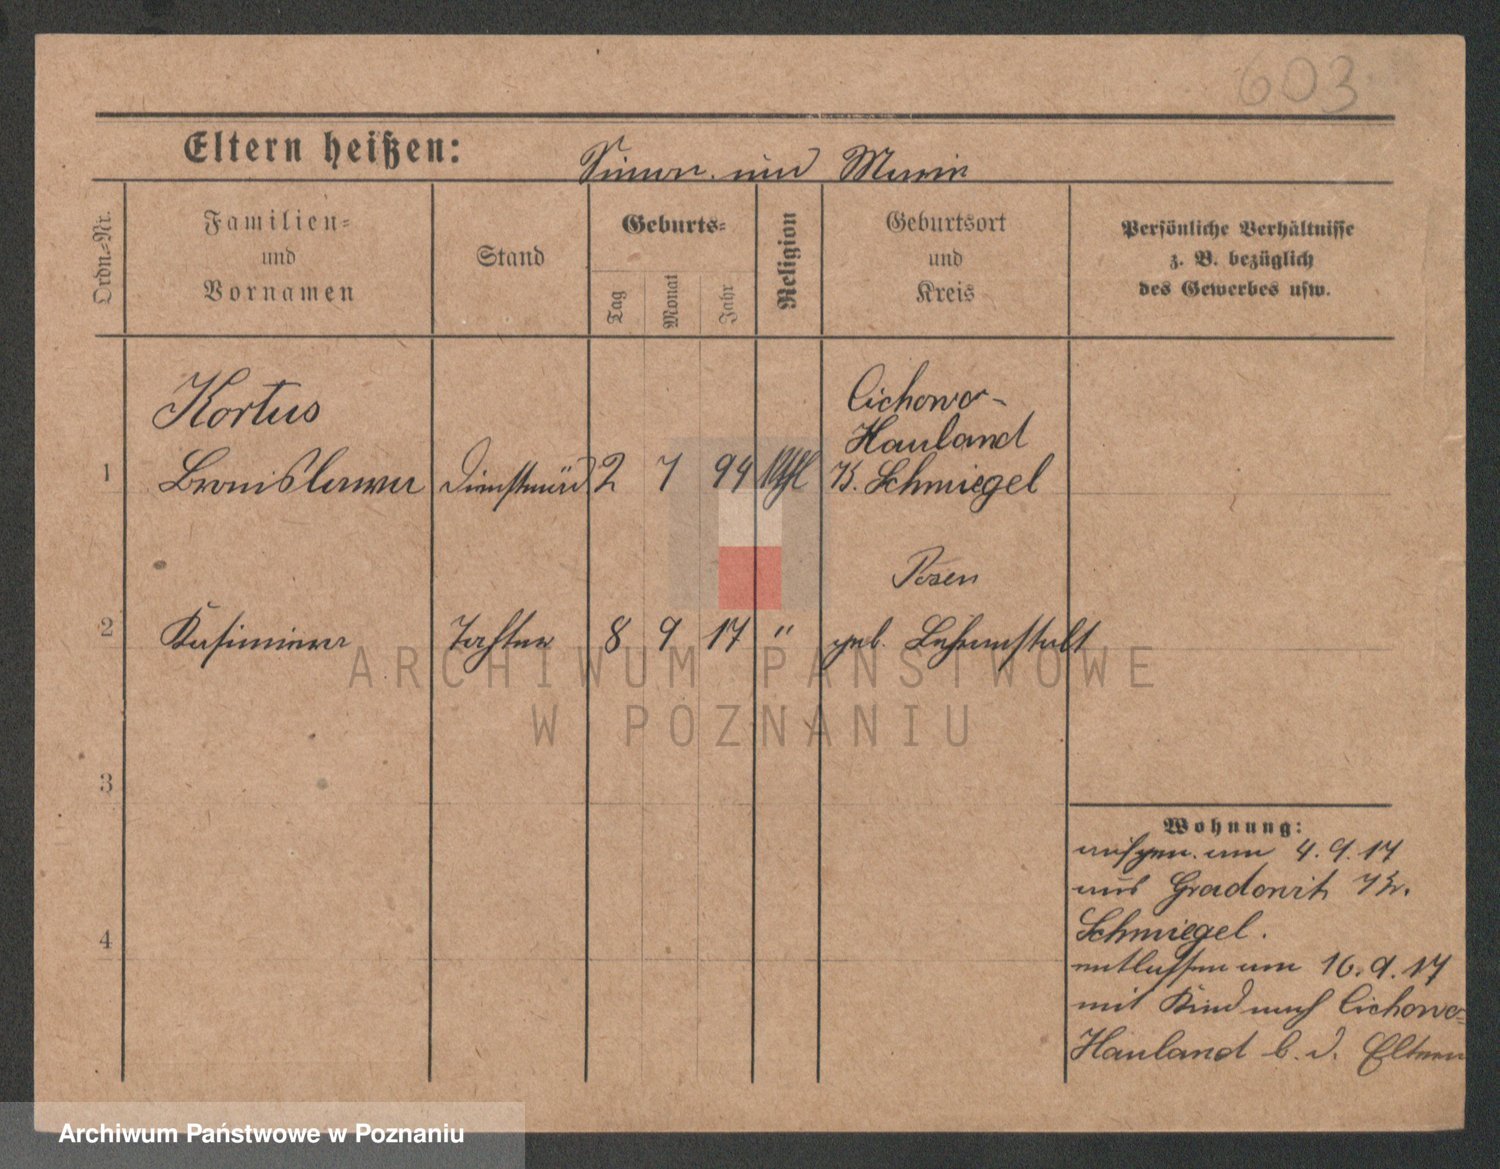 603
Eltern heißen: Simon und Marie
Ordn.-Nr.
Familien-
und
Vornamen
Stand
Geburts-
Tag
Monat
Jahr
Religion
Geburtsort
und
Kreis
Persönliche Verhältnisse
z. B. bezüglich
des Gewerbes usw.
Kortus
Cichowo-
Hauland
1 Bronislawa Dienstmäd 2 7 94 Kath K. Schmiegel
Posen
2 Kasimiera Tochter 8 9 17 " geb. Hebeanstalt
ARCHIWUM PAŃSTWOWE
W POZNANIU
3
4
Wohnung:
aufgen. am 4. 9. 17
aus Gradowit Kr.
Schmiegel.
entlassen am 16. 9. 17
mit Kind nach Cichowo-
Hauland b. d. Eltern
Archiwum Państwowe w Poznaniu